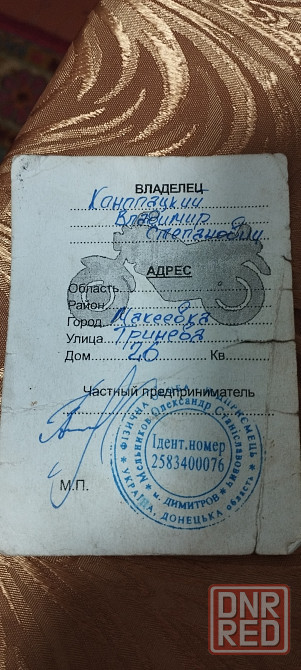 ВЛАДЕЛЕЦ
Канопацкий
Владимир
Степанович
АДРЕС
Область
Район
Город Макеевка
Улица Гринева
Дом 26 Кв.
Частный предприниматель
М.П.
ФІЗИЧНА ОСОБА ПІДПРИЄМЕЦЬ
Мельников Олександр Станіславович
Ідент.номер
2583400076
м. ДИМИТРОВ
УКРАЇНА, ДОНЕЦЬКА область
DNR
RED